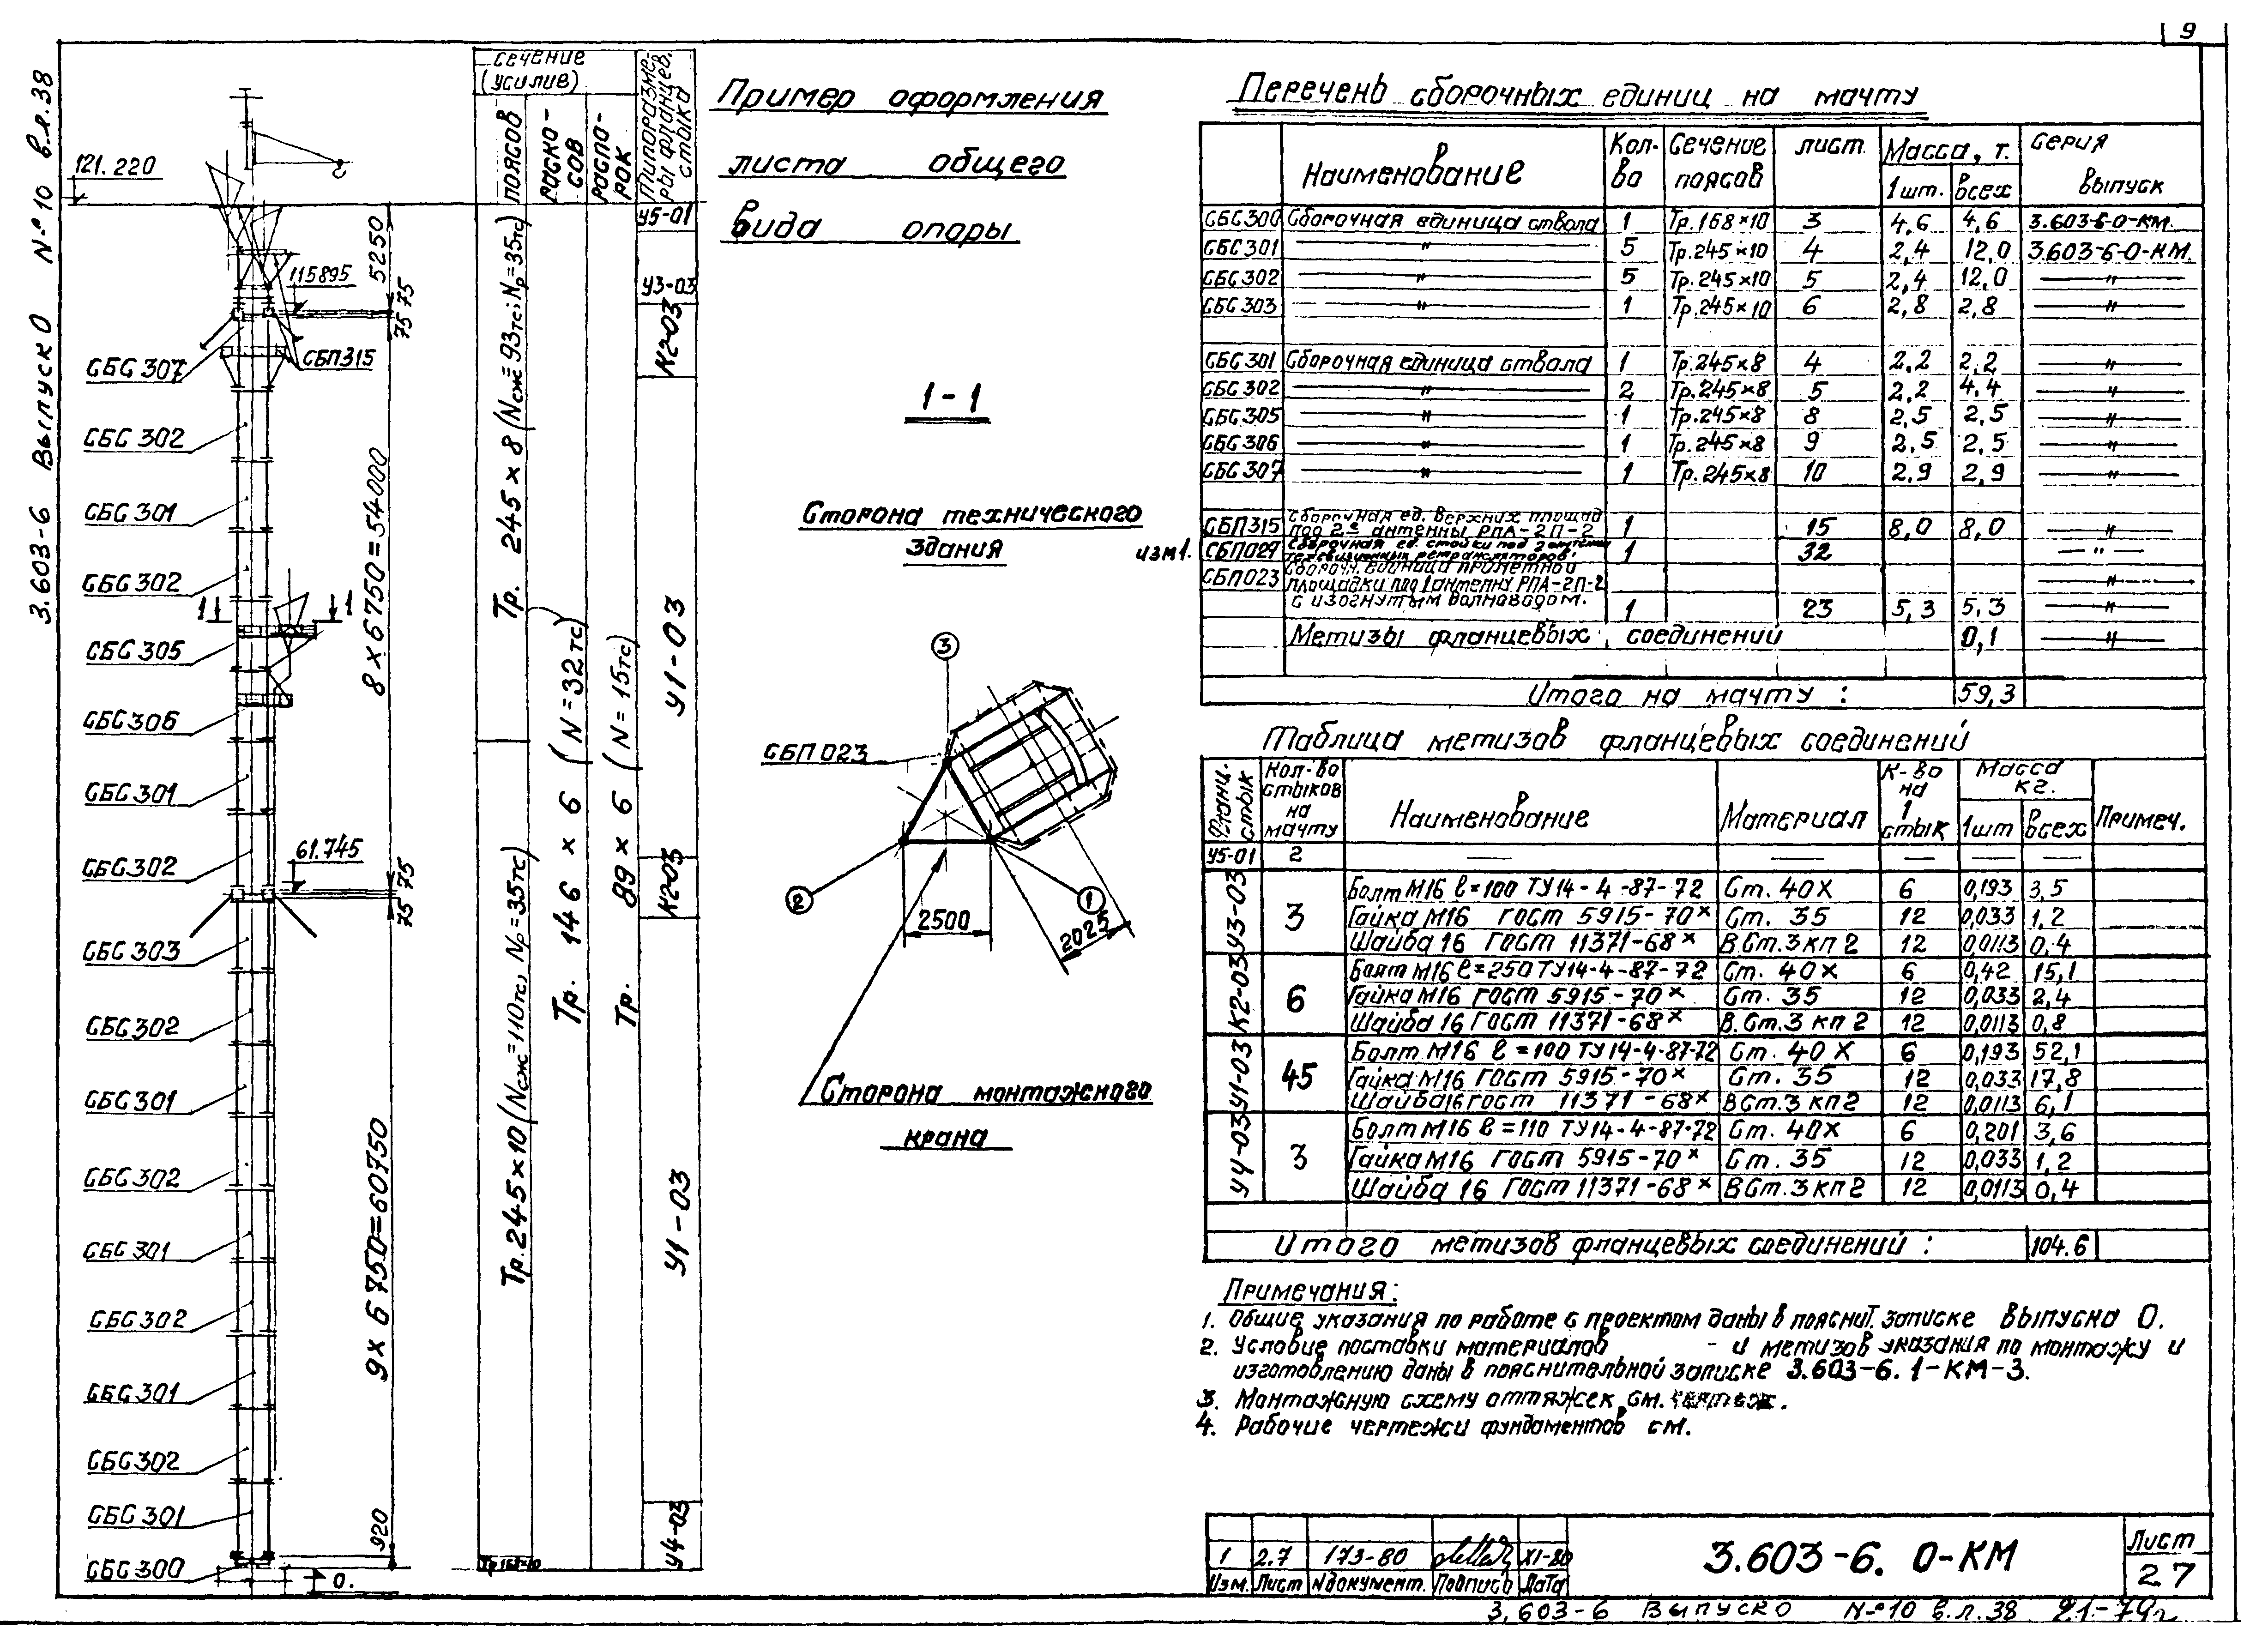 9
3.603-6 Выпуск 0 N-º10 в.л.38
121.220
5250
115895
75 75
СБС 307
СБП315
СБС 302
СБС 301
8 × 6750 = 54000
СБС 302
1 1
СБС 305
СБС 306
СБС 301
61.745
СБС 302
75 75
СБС 303
СБС 302
СБС 301
СБС 302
9 × 6750 = 60750
СБС 301
СБС 302
СБС 301
СБС 302
СБС 301
920
СБС 300
0.
сечение
(усилив)
поясов
раско-
сов
распо-
рок
Типоразме-
ры фланцев.
стыка
Тр. 245 × 8 (Nсж=93тс; Nр=35тс)
Тр. 245×10 (Nсж=110тс, Nр=35тс)
Тр. 146 × 6 (N=32тс)
Тр. 89 × 6 (N=15тс)
У5-01
У3-03
К2-03
У1-03
К2-03
У1-03
У4-03
Пример оформления
листа общего
вида опоры
1-1
Сторона технического
здания
3
СБП 023
2
1
2500
2025
Сторона монтажного
крана
Перечень сборочных единиц на мачту
Наименование Кол-во Сечение поясов лист Масса, т. Серия выпуск
1 шт. всех
СБС300 Сборочная единица ствола 1 Тр.168×10 3 4,6 4,6 3.603-6-0-КМ.
СБС301 " 5 Тр.245×10 4 2,4 12,0 3.603-6-0-КМ.
СБС302 " 5 Тр.245×10 5 2,4 12,0 "
СБС303 " 1 Тр.245×10 6 2,8 2,8 "
СБС301 Сборочная единица ствола 1 Тр.245×8 4 2,2 2,2 "
СБС302 " 2 Тр.245×8 5 2,2 4,4 "
СБС305 " 1 Тр.245×8 8 2,5 2,5 "
СБС306 " 1 Тр.245×8 9 2,5 2,5 "
СБС307 " 1 Тр.245×8 10 2,9 2,9 "
СБП315 Сборочная ед. верхних площад
под 2е антенны РПА-2П-2 1 15 8,0 8,0 "
изм1. СБП029 Сборочная ед. стойки под 2 антенны
телевизионных ретрансляторов. 1 32 "
СБП023 Сборочн. единица приметной "
площадки под 1 антенну РПА-2П-2
с изогнутым волноводом. 1 23 5,3 5,3 "
Метизы фланцевых соединений 0,1 "
Итого на мачту : 59,3
Таблица метизов фланцевых соединений
Фланц. стык Кол-во стыков на мачту Наименование Материал К-во на 1 стык Масса кг. Примеч.
1шт всех
У5-01 2 — — — — —
У3-03 3 Болт М16 ℓ=100 ТУ14-4-87-72 Ст. 40Х 6 0,193 3,5
Гайка М16 ГОСТ 5915-70× Ст. 35 12 0,033 1,2
Шайба 16 ГОСТ 11371-68× В.Ст.3 кп 2 12 0,0113 0,4
К2-03 6 Болт М16 ℓ=250 ТУ14-4-87-72 Ст. 40Х 6 0,42 15,1
Гайка М16 ГОСТ 5915-70× Ст. 35 12 0,033 2,4
Шайба 16 ГОСТ 11371-68× В.Ст.3 кп 2 12 0,0113 0,8
У1-03 45 Болт М16 ℓ=100 ТУ14-4-87-72 Ст. 40Х 6 0,193 52,1
Гайка М16 ГОСТ 5915-70× Ст. 35 12 0,033 17,8
Шайба 16 ГОСТ 11371-68× В Ст.3 кп 2 12 0,0113 6,1
У4-03 3 Болт М16 ℓ=110 ТУ14-4-87-72 Ст. 40Х 6 0,201 3,6
Гайка М16 ГОСТ 5915-70× Ст. 35 12 0,033 1,2
Шайба 16 ГОСТ 11371-68× В Ст.3 кп 2 12 0,0113 0,4
Итого метизов фланцевых соединений : 104.6
Примечания:
1. Общие указания по работе с проектом даны в пояснит. записке выпуска 0.
2. Условие поставки материалов - и метизов указания по монтажу и
изготовлению даны в пояснительной записке 3.603-6. 1-КМ-3.
3. Монтажную схему оттяжек см. чертеж.
4. Рабочие чертежи фундаментов см.
1 2.7 173-80 XI-80
Изм. Лист Nдокумент. Подпись Дата
3.603-6. 0-КМ
Лист
2.7
3.603-6 Выпуск 0 N-º10 в.л.38 21-79г